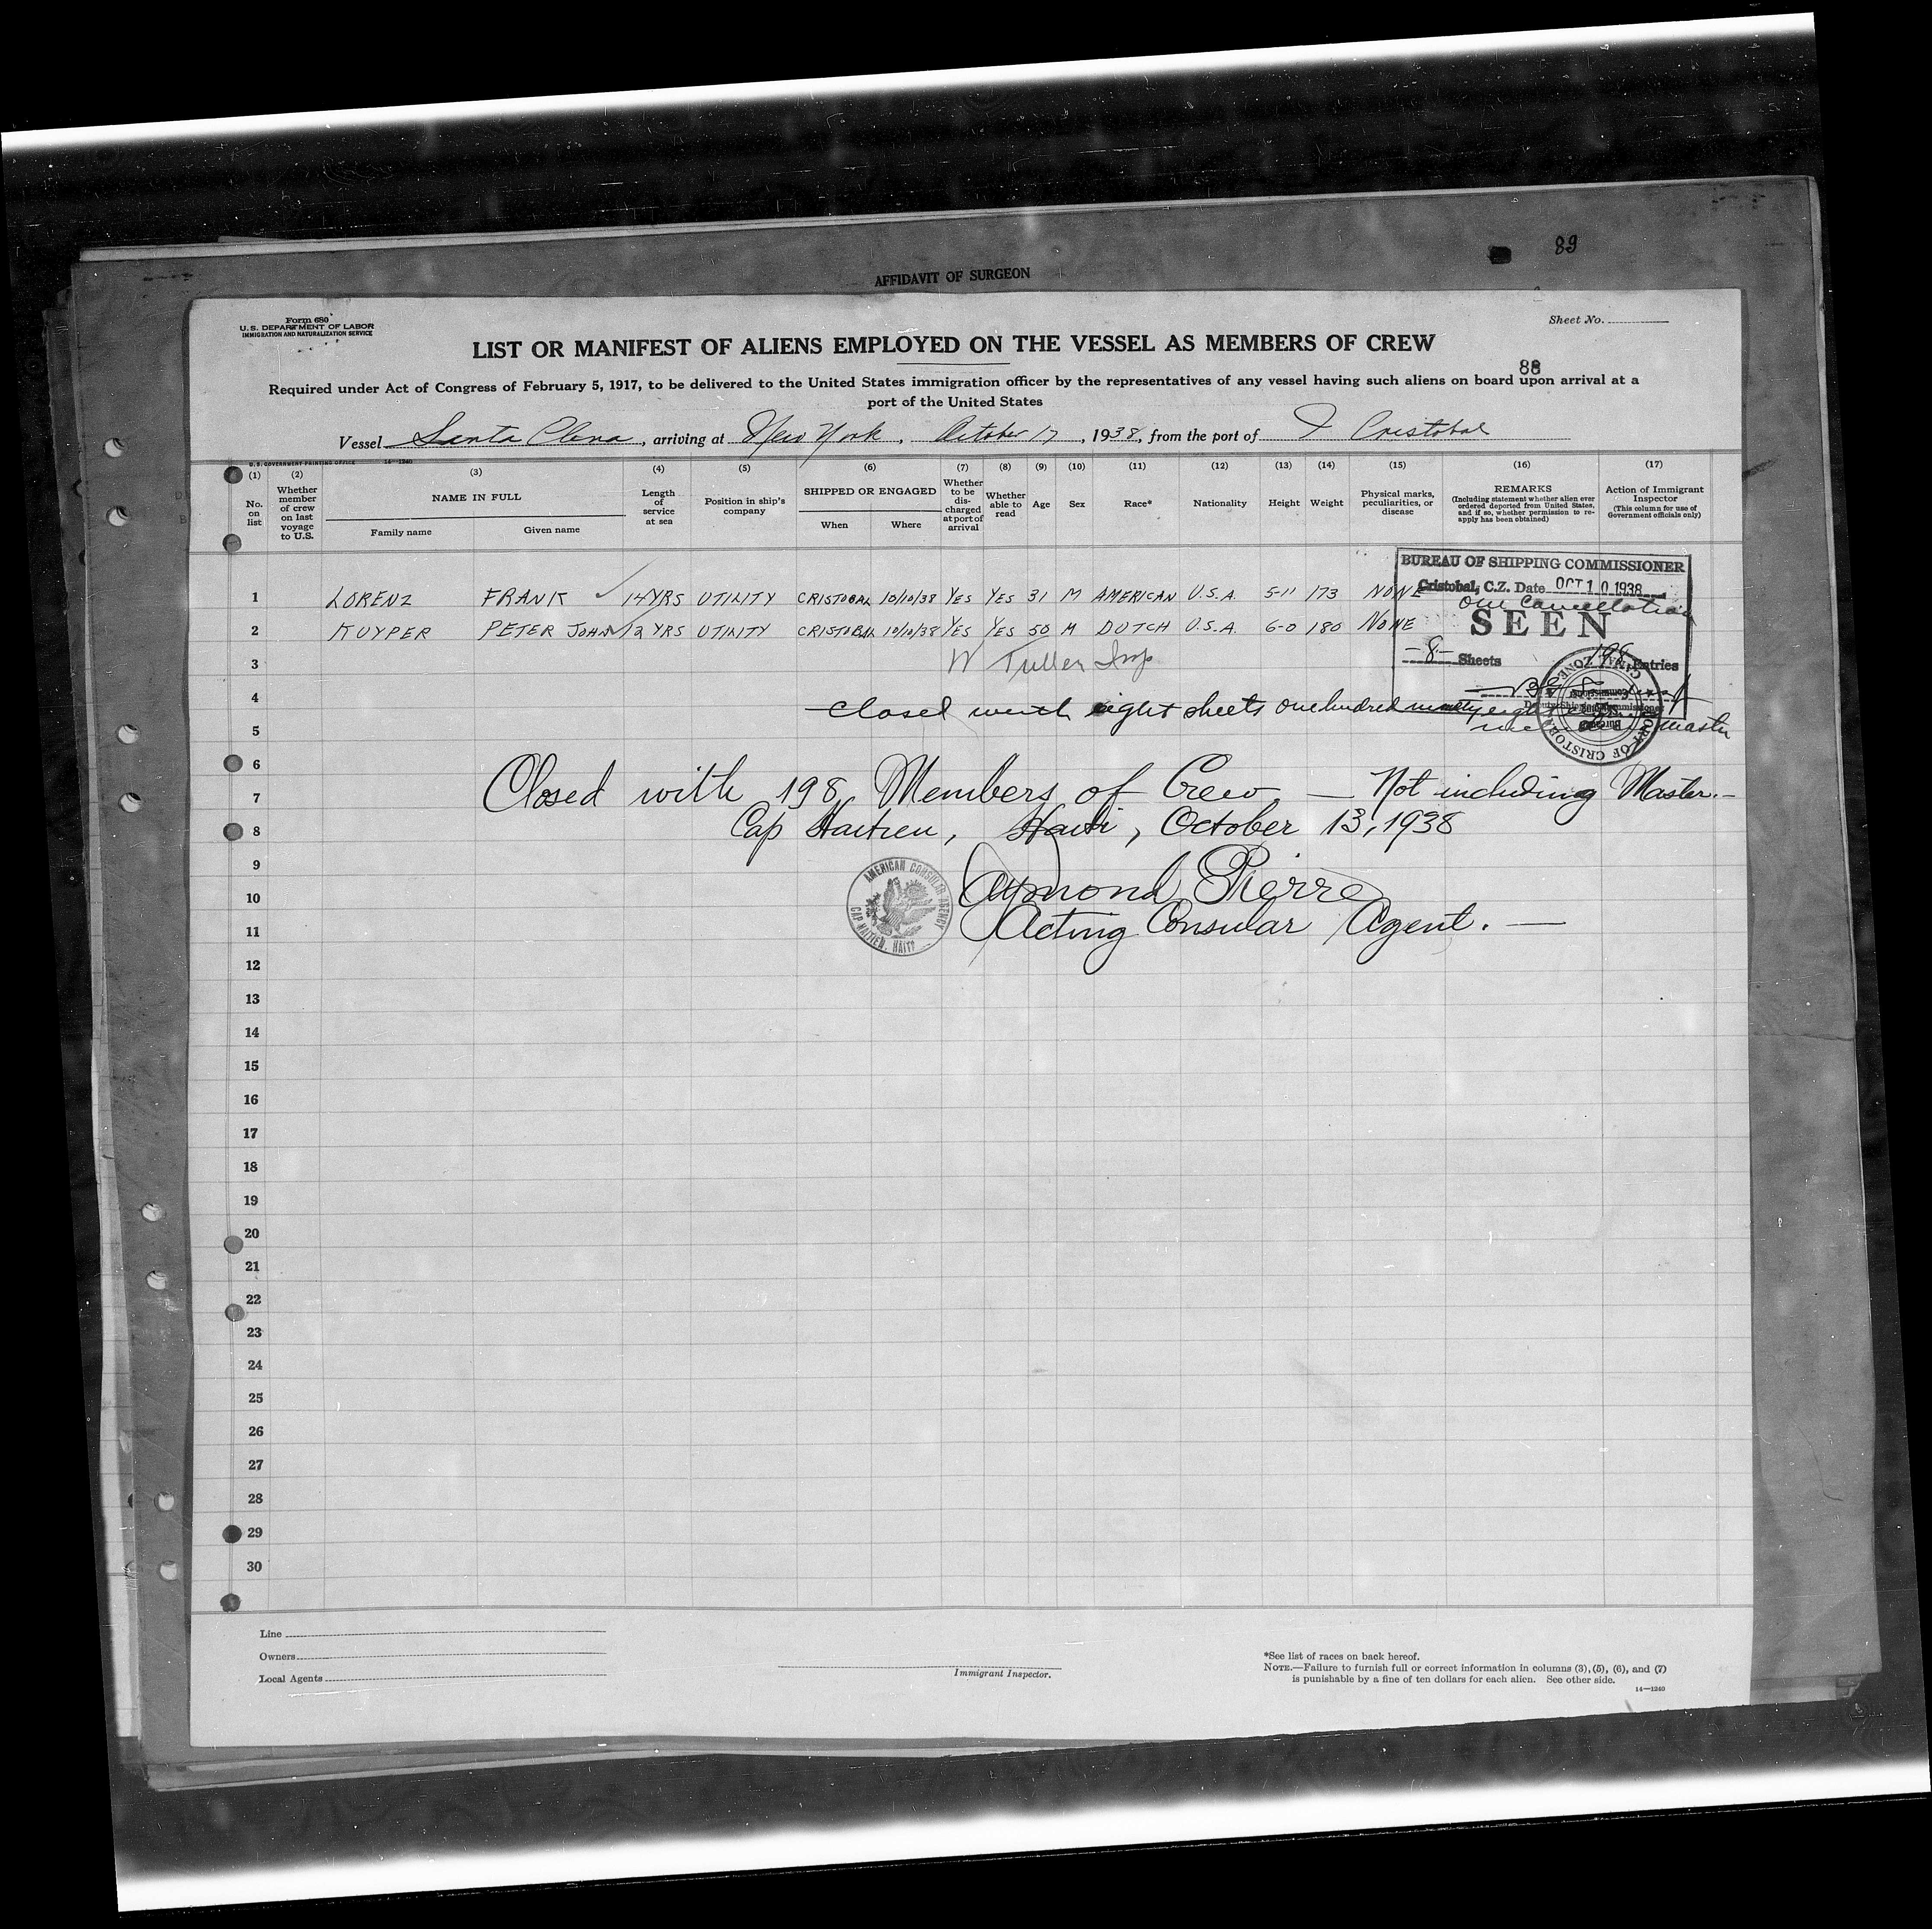 89
AFFIDAVIT OF SURGEON
Form 680
U.S. DEPARTMENT OF LABOR
IMMIGRATION AND NATURALIZATION SERVICE
Sheet No.
LIST OR MANIFEST OF ALIENS EMPLOYED ON THE VESSEL AS MEMBERS OF CREW
88
Required under Act of Congress of February 5, 1917, to be delivered to the United States immigration officer by the representatives of any vessel having such aliens on board upon arrival at a
port of the United States
Vessel Santa Elena, arriving at New York, October 17, 1938, from the port of Cristobal
U.S. GOVERNMENT PRINTING OFFICE 14—1240
(1) (2) (3) (4) (5) (6) (7) (8) (9) (10) (11) (12) (13) (14) (15) (16) (17)
No. on list
Whether member of crew on last voyage to U.S.
NAME IN FULL
Family name Given name
Length of service at sea
Position in ship's company
SHIPPED OR ENGAGED
When Where
Whether to be discharged at port of arrival
Whether able to read
Age
Sex
Race*
Nationality
Height
Weight
Physical marks, peculiarities, or disease
REMARKS
(Including statement whether alien ever ordered deported from United States, and if so, whether permission to re-apply has been obtained)
Action of Immigrant Inspector
(This column for use of Government officials only)
BUREAU OF SHIPPING COMMISSIONER
Cristobal, C.Z. Date OCT 10 1938
One Cancellation
SEEN
-8- Sheets 198 Entries
Deputy Shipping Commissioner
PORT OF CRISTOBAL CANAL ZONE
1 LORENZ FRANK 14 YRS UTILITY CRISTOBAL 10/10/38 YES YES 31 M AMERICAN U.S.A. 5-11 173 NONE
2 KUYPER PETER JOHN 12 YRS UTILITY CRISTOBAL 10/10/38 YES YES 50 M DUTCH U.S.A. 6-0 180 NONE
3 W Tuller Insp
4 Closed with eight sheets one hundred ninety eight
5 Master
6
7 Closed with 198 Members of Crew — Not including Master.—
8 Cap Haitien, Haiti, October 13, 1938
9
10 Raymond Pierre
11 Acting Consular Agent. —
AMERICAN CONSULAR AGENCY
CAP HAITIEN, HAITI
12
13
14
15
16
17
18
19
20
21
22
23
24
25
26
27
28
29
30
Line
Owners
Local Agents
Immigrant Inspector.
*See list of races on back hereof.
NOTE.—Failure to furnish full or correct information in columns (3), (5), (6), and (7)
is punishable by a fine of ten dollars for each alien. See other side.
14—1240